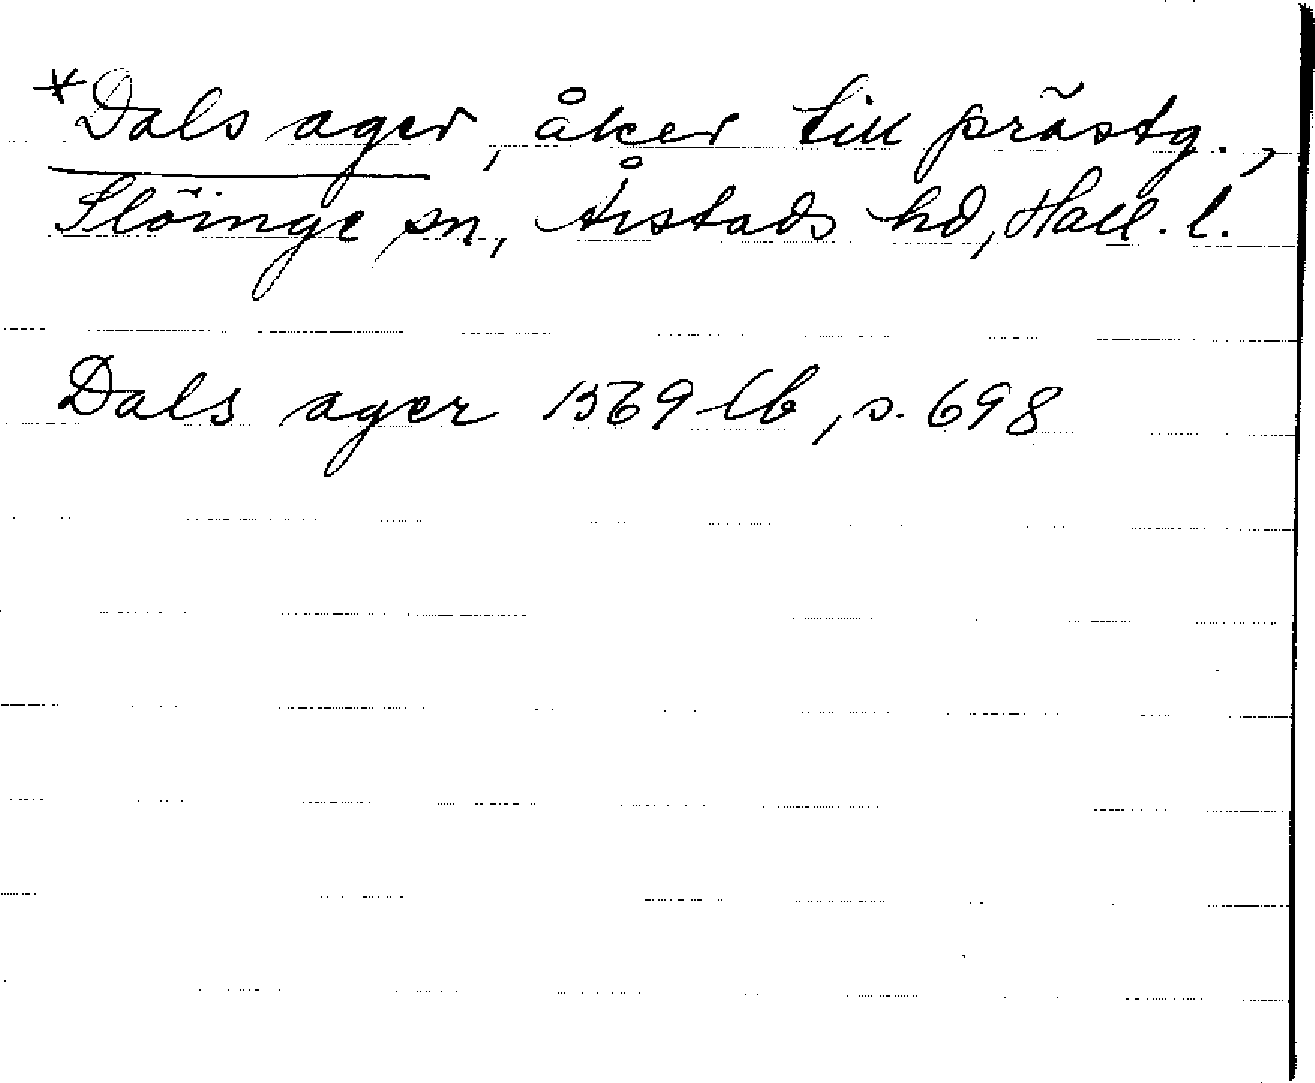 *Dals ager, åker till prästg.,
Slöinge sn, Årstads hd, Hall. l.
Dals ager 1569 lb, s. 698